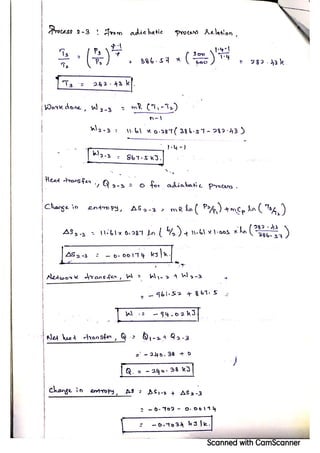 Process 2-3 : from adiabatic process Relation,
T3/T2 = (P3/P2)^γ-1/γ = 386.57 × (200/600)^1.4-1/1.4 = 282.43 k
T3 = 282.43 k
Work done, W2-3 = mR (T2-T3)/n-1
W2-3 = 11.61 × 0.287 (386.57 - 282.43)/1.4-1
W2-3 = 867.5 kJ.
Heat transfer, Q2-3 = 0 for adiabatic process.
Change in entropy, ΔS2-3 = mR ln (P2/P3) + mCp ln (T3/T2)
ΔS2-3 = 11.61 × 0.287 ln (6/2) + 11.61 × 1.005 × ln (282.43/386.57)
ΔS2-3 = -0.00174 kJ/k
Network transfer, W = W1-2 + W2-3
= -961.52 + 867.5
W = -94.02 kJ
Net heat transfer, Q = Q1-2 + Q2-3
= -240.38 + 0
Q = -240.38 kJ
Change in entropy, ΔS = ΔS1-2 + ΔS2-3
= -0.702 - 0.00174
= -0.7034 kJ/k.
Scanned with CamScanner